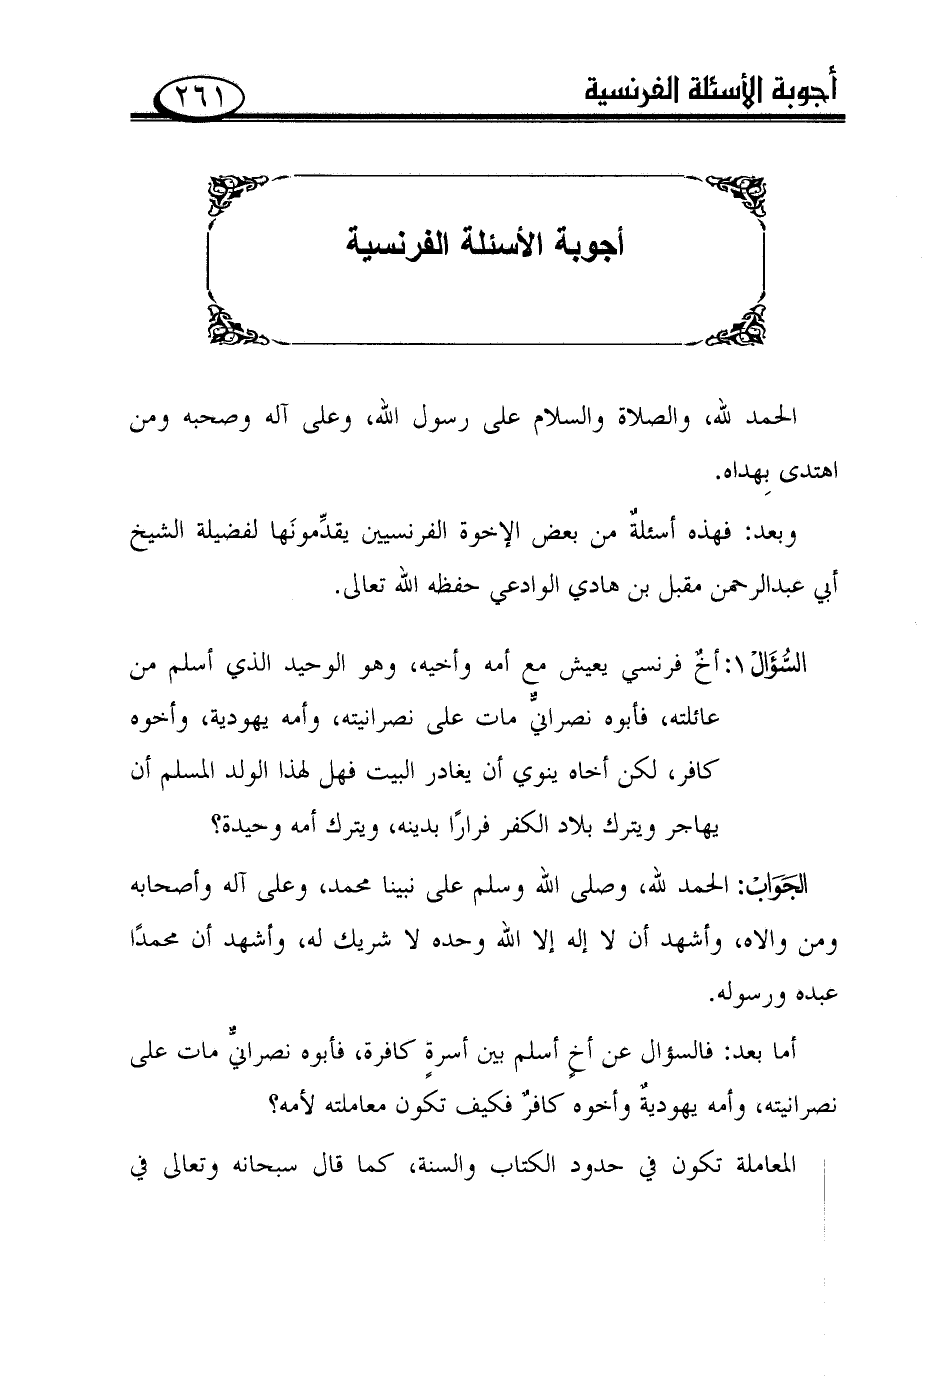 أجوبة الأسئلة الفرنسية
٢٦١
أجوبة الأسئلة الفرنسية
الحمد لله، والصلاة والسلام على رسول الله، وعلى آله وصحبه ومن
اهتدى بِهداه.
وبعد: فهذه أسئلةٌ من بعض الإخوة الفرنسيين يقدِّمونَها لفضيلة الشيخ
أبي عبدالرحمن مقبل بن هادي الوادعي حفظه الله تعالى.
السُّؤَالُ ١: أخٌ فرنسي يعيش مع أمه وأخيه، وهو الوحيد الذي أسلم من
عائلته، فأبوه نصرانيٌّ مات على نصرانيته، وأمه يهودية، وأخوه
كافر، لكن أخاه ينوي أن يغادر البيت فهل لهذا الولد المسلم أن
يهاجر ويترك بلاد الكفر فرارًا بدينه، ويترك أمه وحيدة؟
الجَوَابُ: الحمد لله، وصلى الله وسلم على نبينا محمد، وعلى آله وأصحابه
ومن والاه، وأشهد أن لا إله إلا الله وحده لا شريك له، وأشهد أن محمدًا
عبده ورسوله.
أما بعد: فالسؤال عن أخٍ أسلم بين أسرةٍ كافرة، فأبوه نصرانيٌّ مات على
نصرانيته، وأمه يهوديةٌ وأخوه كافرٌ فكيف تكون معاملته لأمه؟
المعاملة تكون في حدود الكتاب والسنة، كما قال سبحانه وتعالى في